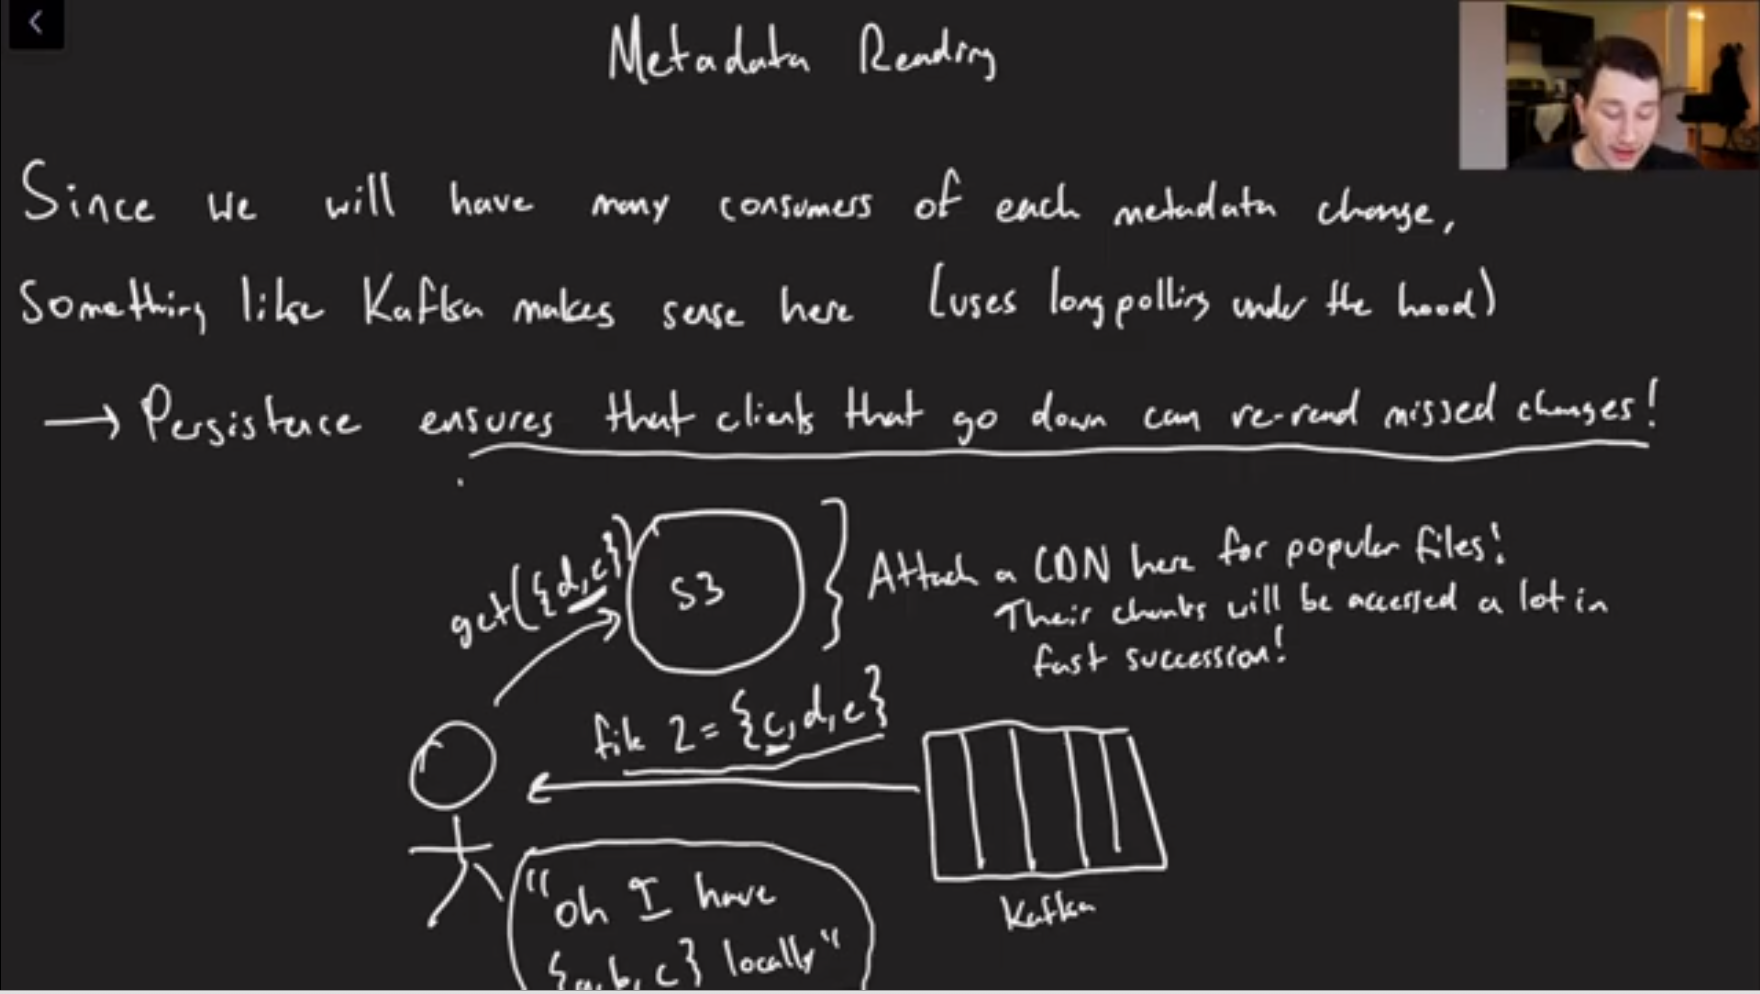 Metadata Reading
Since we will have many consumers of each metadata change,
Something like Kafka makes sense here (uses long polling under the hood)
→ Persistence ensures that clients that go down can re-read missed changes!
get({d,e})
S3
} Attach a CDN here for popular files!
Their chunks will be accessed a lot in
fast succession!
file 2 = {c,d,e}
Kafka
"Oh I have
{a,b,c} locally"